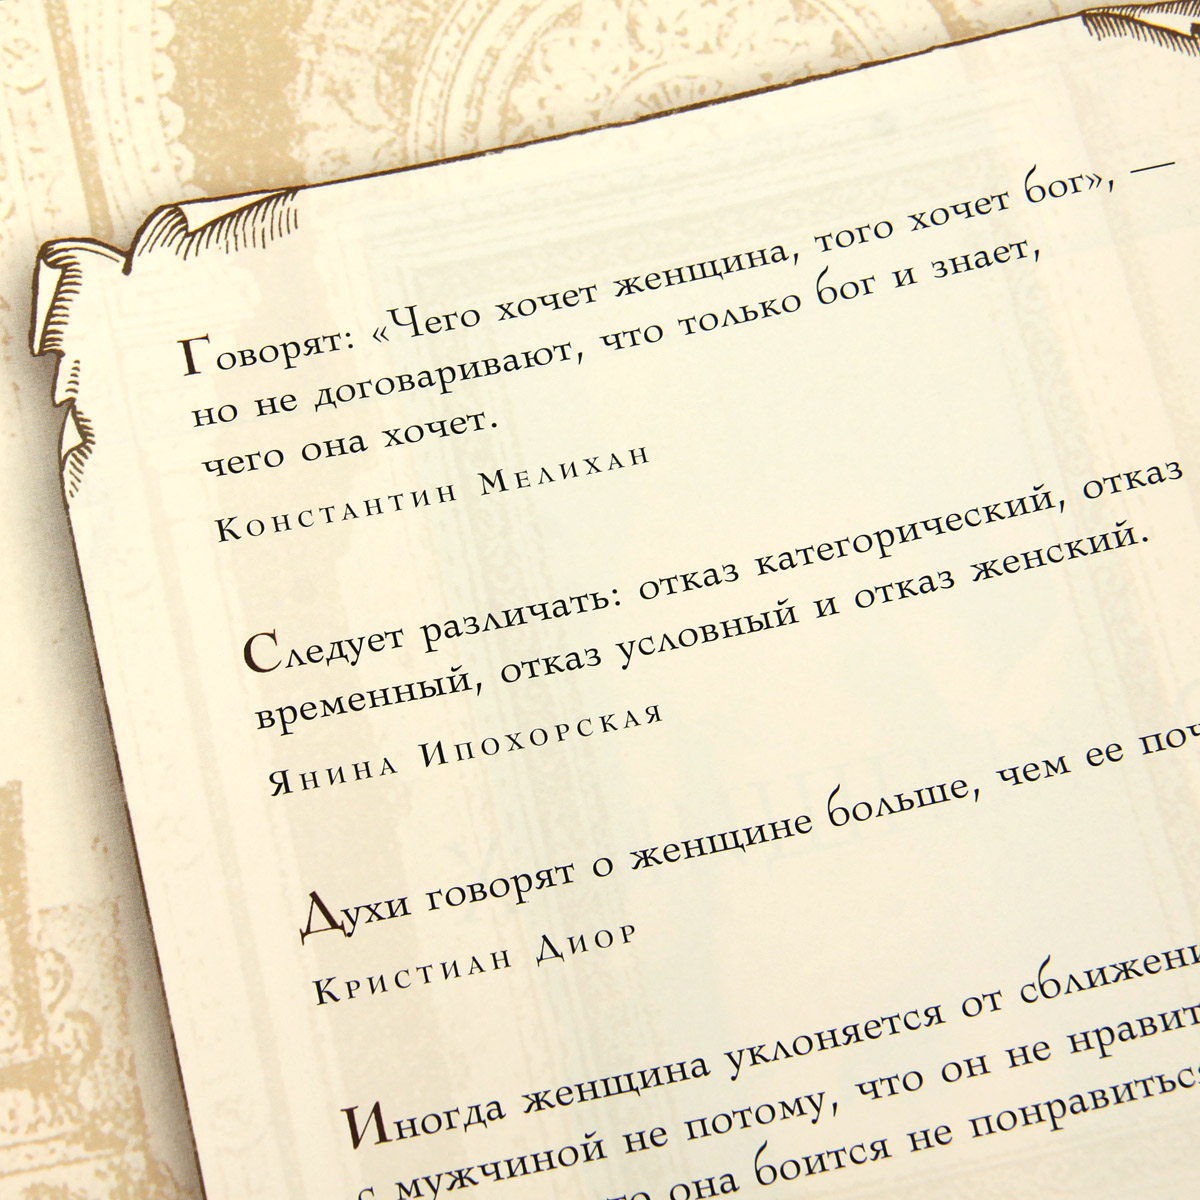 Говорят: «Чего хочет женщина, того хочет бог», —
но не договаривают, что только бог и знает,
чего она хочет.
Константин Мелихан
Следует различать: отказ категорический, отказ
временный, отказ условный и отказ женский.
Янина Ипохорская
Духи говорят о женщине больше, чем ее
Кристиан Диор
Иногда женщина уклоняется от
с мужчиной не потому, что он не
она боится не понравиться